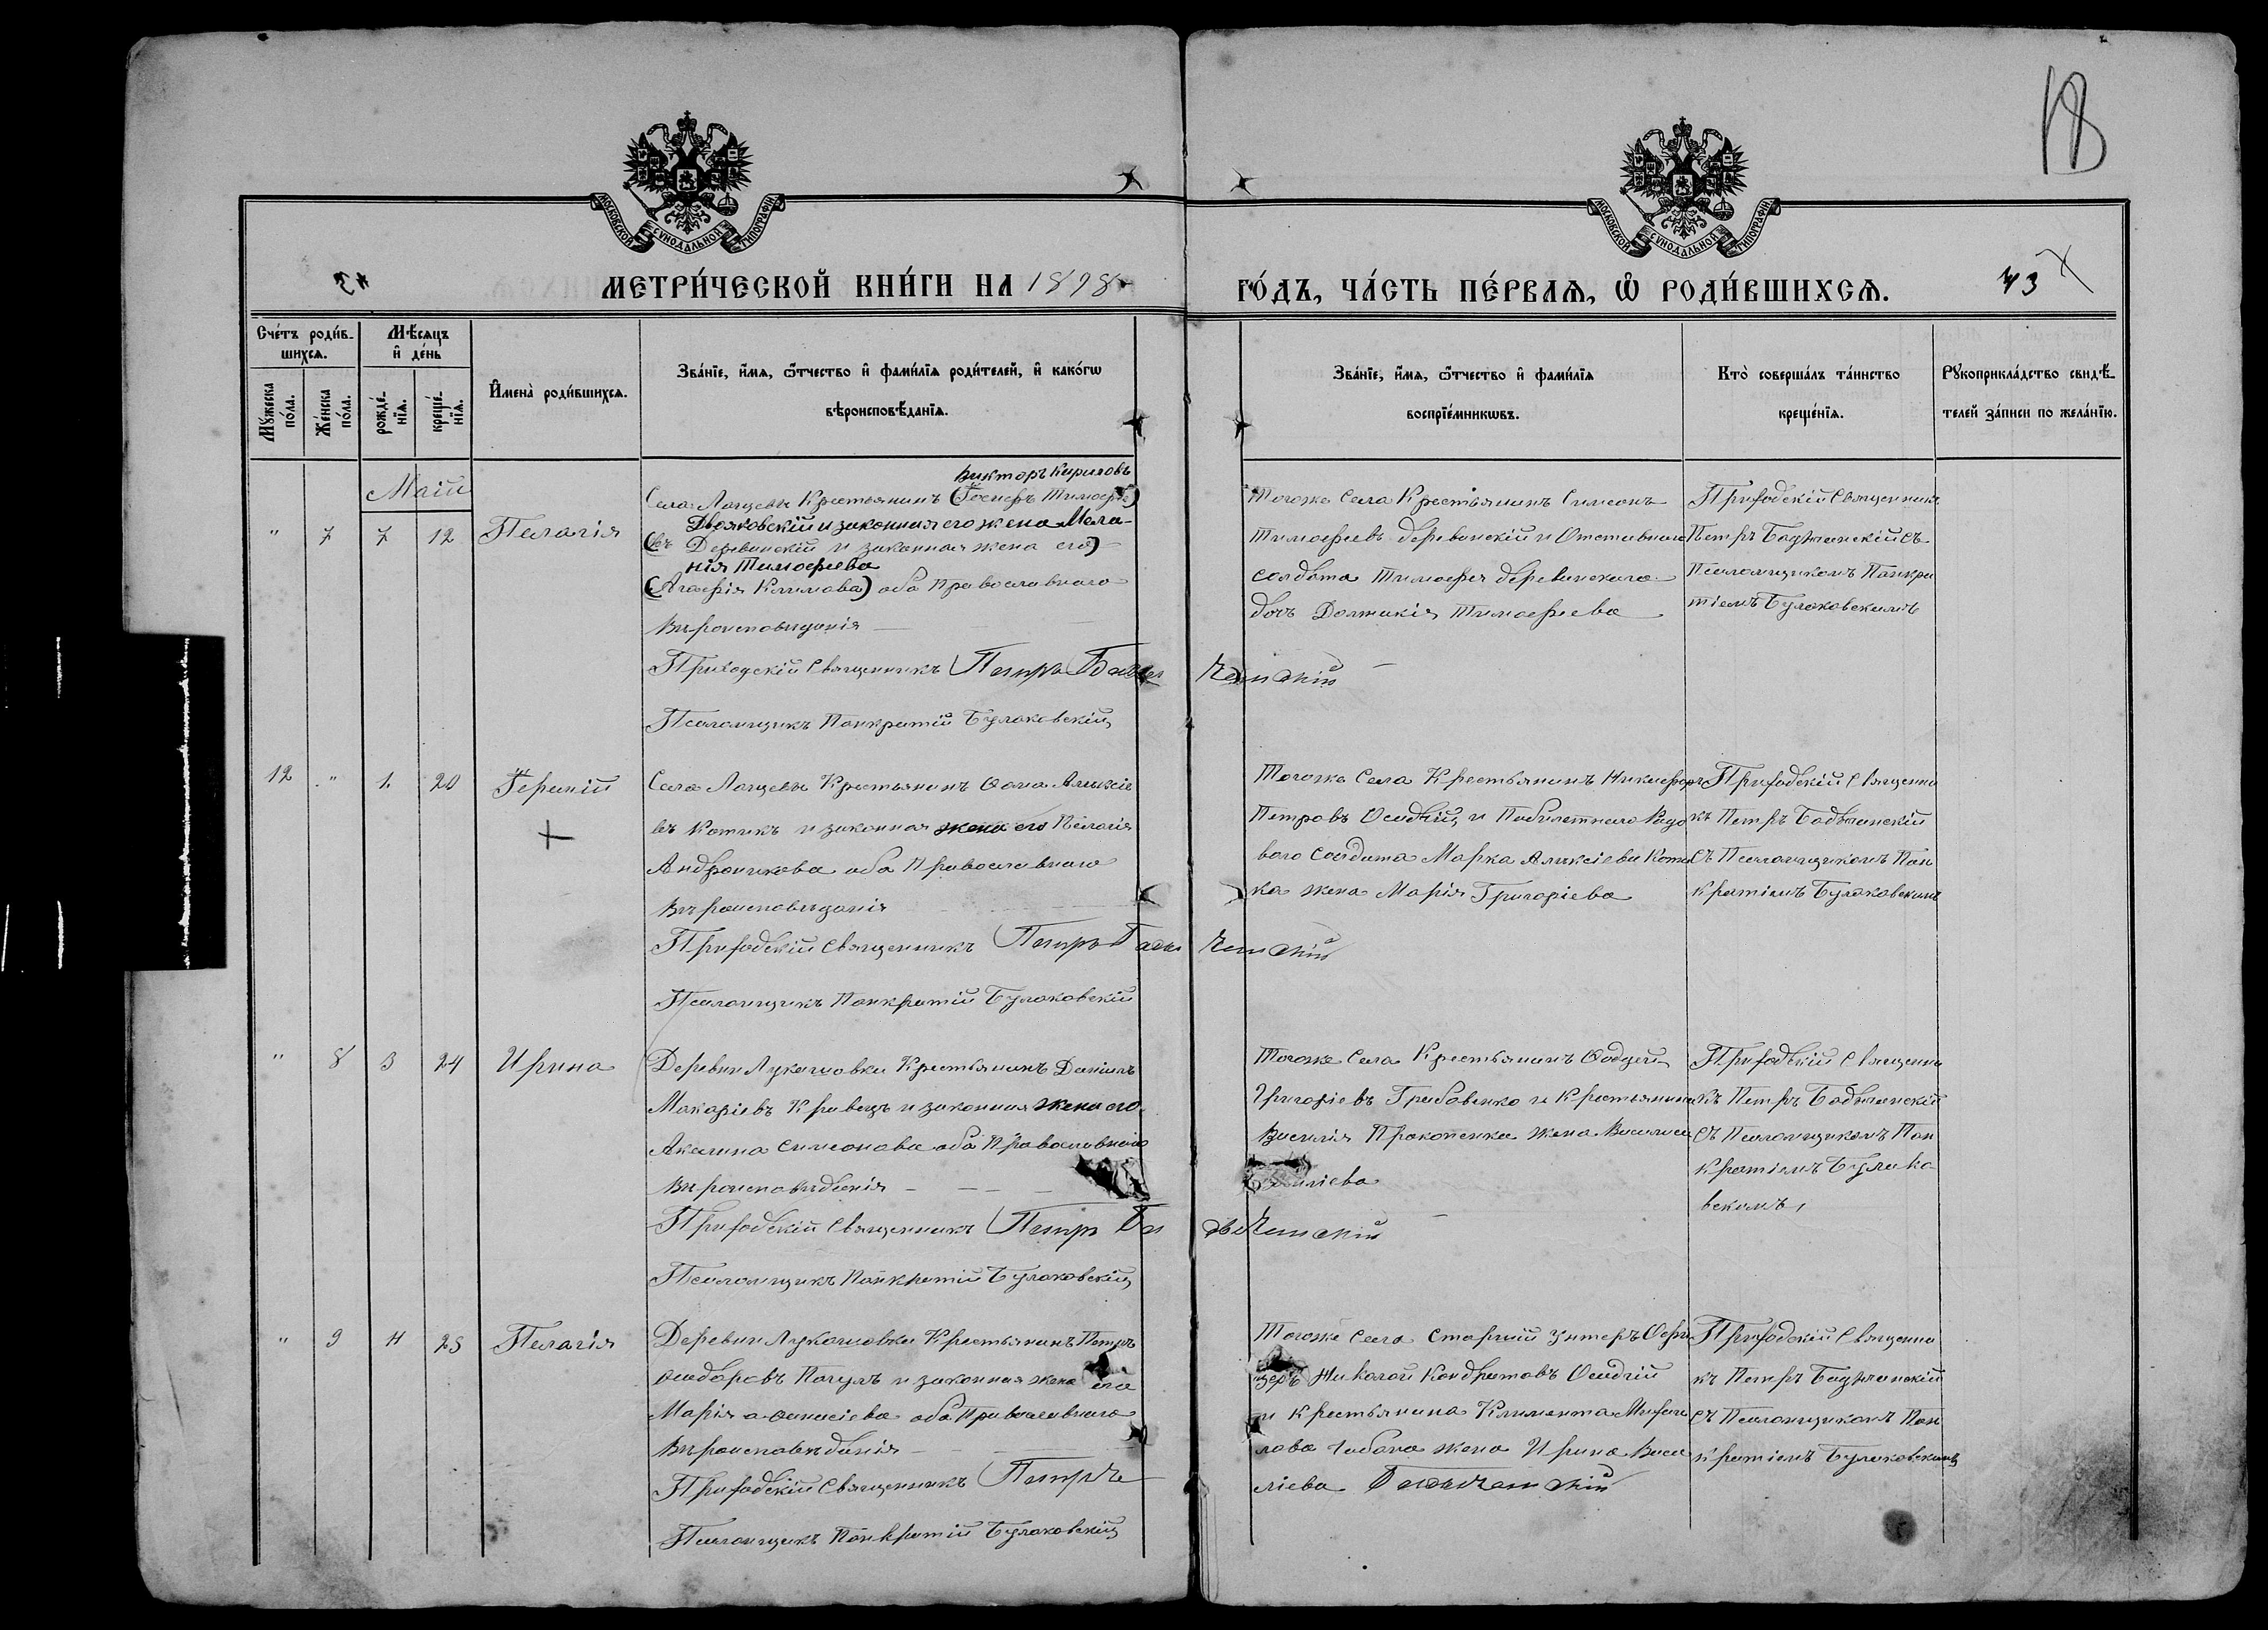 18
МОСКОВСКОЙ СУНОДАЛЬНОЙ ТИПОГРАФІИ
МОСКОВСКОЙ СУНОДАЛЬНОЙ ТИПОГРАФІИ
43
МЕТРИ́ЧЕСКОЙ КНИ́ГИ НА 1898
ГО́ДЪ, ЧА́СТЬ ПЕ́РВАѦ, Ѡ҆ РОДИ́ВШИХСѦ.
43
Сче́тъ роди́в-
шихсѧ.
Мѣ́сѧцъ
и҆ де́нь
Мꙋ́жеска
по́ла.
Же́нска
по́ла.
рожде́-
нїѧ.
креще́-
нїѧ.
И҆мена̀ роди́вшихсѧ.
Зва́нїе, и҆́мѧ, ѻ҆́тчество и҆ фами́лїѧ роди́телей, и҆ како́гѡ
вѣроисповѣ́данїѧ.
Зва́нїе, и҆́мѧ, ѻ҆́тчество и҆ фами́лїѧ
воспрїе́мникѡвъ.
Кто̀ соверша́лъ та́инство
креще́нїѧ.
Рꙋкоприкла́дство свидѣ́-
телей за́писи по жела́нїю.
Маій
" 7 7 12 Пелагія
Викторъ Кириловъ
Села Крестьянинъ Тимофее)
и законная его жена Мела-
(въ Деревинскій и законная жена его)
нія Тимофеева
(Агафія Климова) оба Православнаго
Вѣроисповѣданія
Приходскій Священникъ Петръ
Псаломщикъ Панкратій Булаковскій
Тогоже Села Крестьянинъ Симеонъ
Тимофеевъ Деревинскій и Отставнаго
Солдата Тимофея Деревинскаго
дочь Тимофеева
Приходскій Священникъ
Петръ съ
Псаломщикомъ Панкра
тіемъ Булаковскимъ
12 " 1 20
Села Крестьянинъ Ѳома Алексіе
въ Котикъ и законная жена его Пелагія
Андроникова оба Православнаго
Вѣроисповѣданія
Приходскій Священникъ Петръ
Псаломщикъ Панкратій Булаковскій
Тогоже Села Крестьянинъ Никифоръ
Петровъ Осадчій, и Рядо
ваго Солдата Марка Алексіева Коти
ка жена Марія Григоріева
Приходскій Священни
къ Петръ
съ Псаломщикомъ Пан
кратіемъ Булаковскимъ
" 8 3 24 Ирина
Деревни Лукашовки Крестьянинъ Даніилъ
Макаріевъ Кравецъ и законная жена его
Акилина Симеонова оба Православнаго
Вѣроисповѣданія
Приходскій Священникъ Петръ
Псаломщикъ Панкратій Булаковскій
Тогоже Села Крестьянинъ
Григоріевъ Грабовенко и Крестьянина
Василія Прокопенка жена Василиса
Приходскій Священни
къ Петръ
съ Псаломщикомъ Пан
кратіемъ Булако
вскимъ,
" 9 4 25 Пелагія
Деревни Лукашовки Крестьянинъ Петръ
и законная жена его
Марія оба Православнаго
Вѣроисповѣданія
Приходскій Священникъ Петръ
Псаломщикъ Панкратій Булаковскій
Тогоже Села Старшій Унтеръ Офи
церъ Николай Кондратовъ Осадчій
и Крестьянина Климента Михаи
лова жена Ирина Васи
ліева
Приходскій Священни
къ Петръ
съ Псаломщикомъ Пан
кратіемъ Булаковскимъ